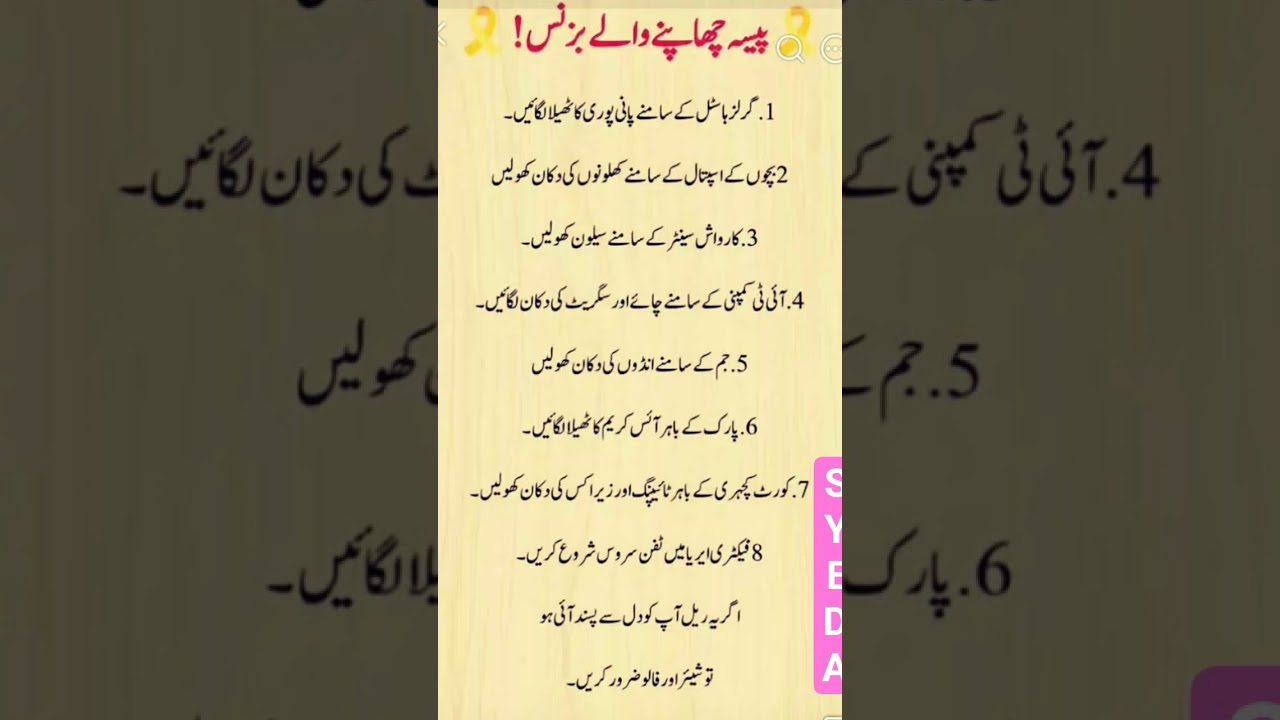 پیسہ چھاپنے والے بزنس!
1. گرلز ہاسٹل کے سامنے پانی پوری کا ٹھیلا لگائیں۔
2 بچوں کے اسپتال کے سامنے کھلونوں کی دکان کھولیں
3. کار واش سینٹر کے سامنے سیلون کھولیں۔
4. آئی ٹی کمپنی کے سامنے چائے اور سگریٹ کی دکان لگائیں۔
5. جم کے سامنے انڈوں کی دکان کھولیں
6. پارک کے باہر آئس کریم کا ٹھیلا لگائیں۔
7. کورٹ کچہری کے باہر ٹائیپنگ اور زیراکس کی دکان کھولیں۔
8 فیکٹری ایریا میں ٹفن سروس شروع کریں۔
اگر یہ ریل آپ کو دل سے پسند آئی ہو
تو شیئر اور فالو ضرور کریں۔
4. آئی ٹی کمپنی کے
کی دکان لگائیں۔
5. جم کے
کھولیں
6. پارک
لگائیں۔
S
Y
E
D
A